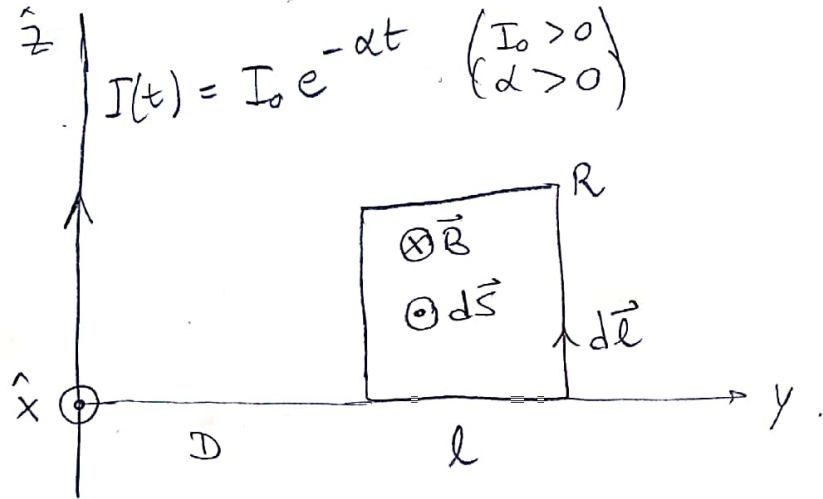 ẑ
I(t) = I₀ e^{-αt} . (I₀ > 0)
(α > 0)
R
⊗ B⃗
⊙ dS⃗
dl⃗
x̂
y .
D
l